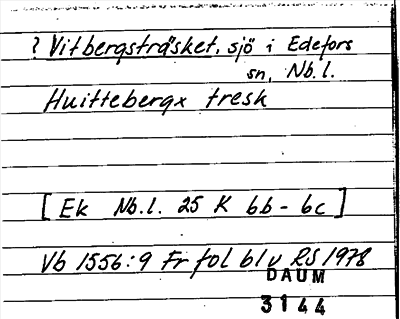 ? Vitbergsträsket, sjö i Edefors
sn, Nb.l.
Huittebergx tresk
[Ek Nb.l. 25 K bb - bc]
Vb 1556:9 Fr fol bl v RS 1978
DAUM
3144